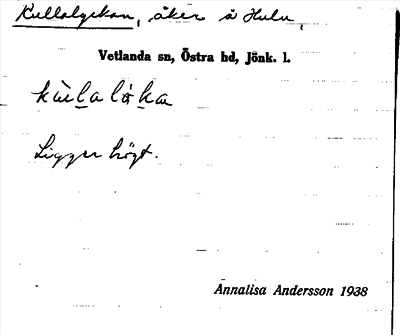 Kullalyckan, åker å Hulu,
Vetlanda sn, Östra hd, Jönk. l.
Ligger högt.
Annalisa Andersson 1938